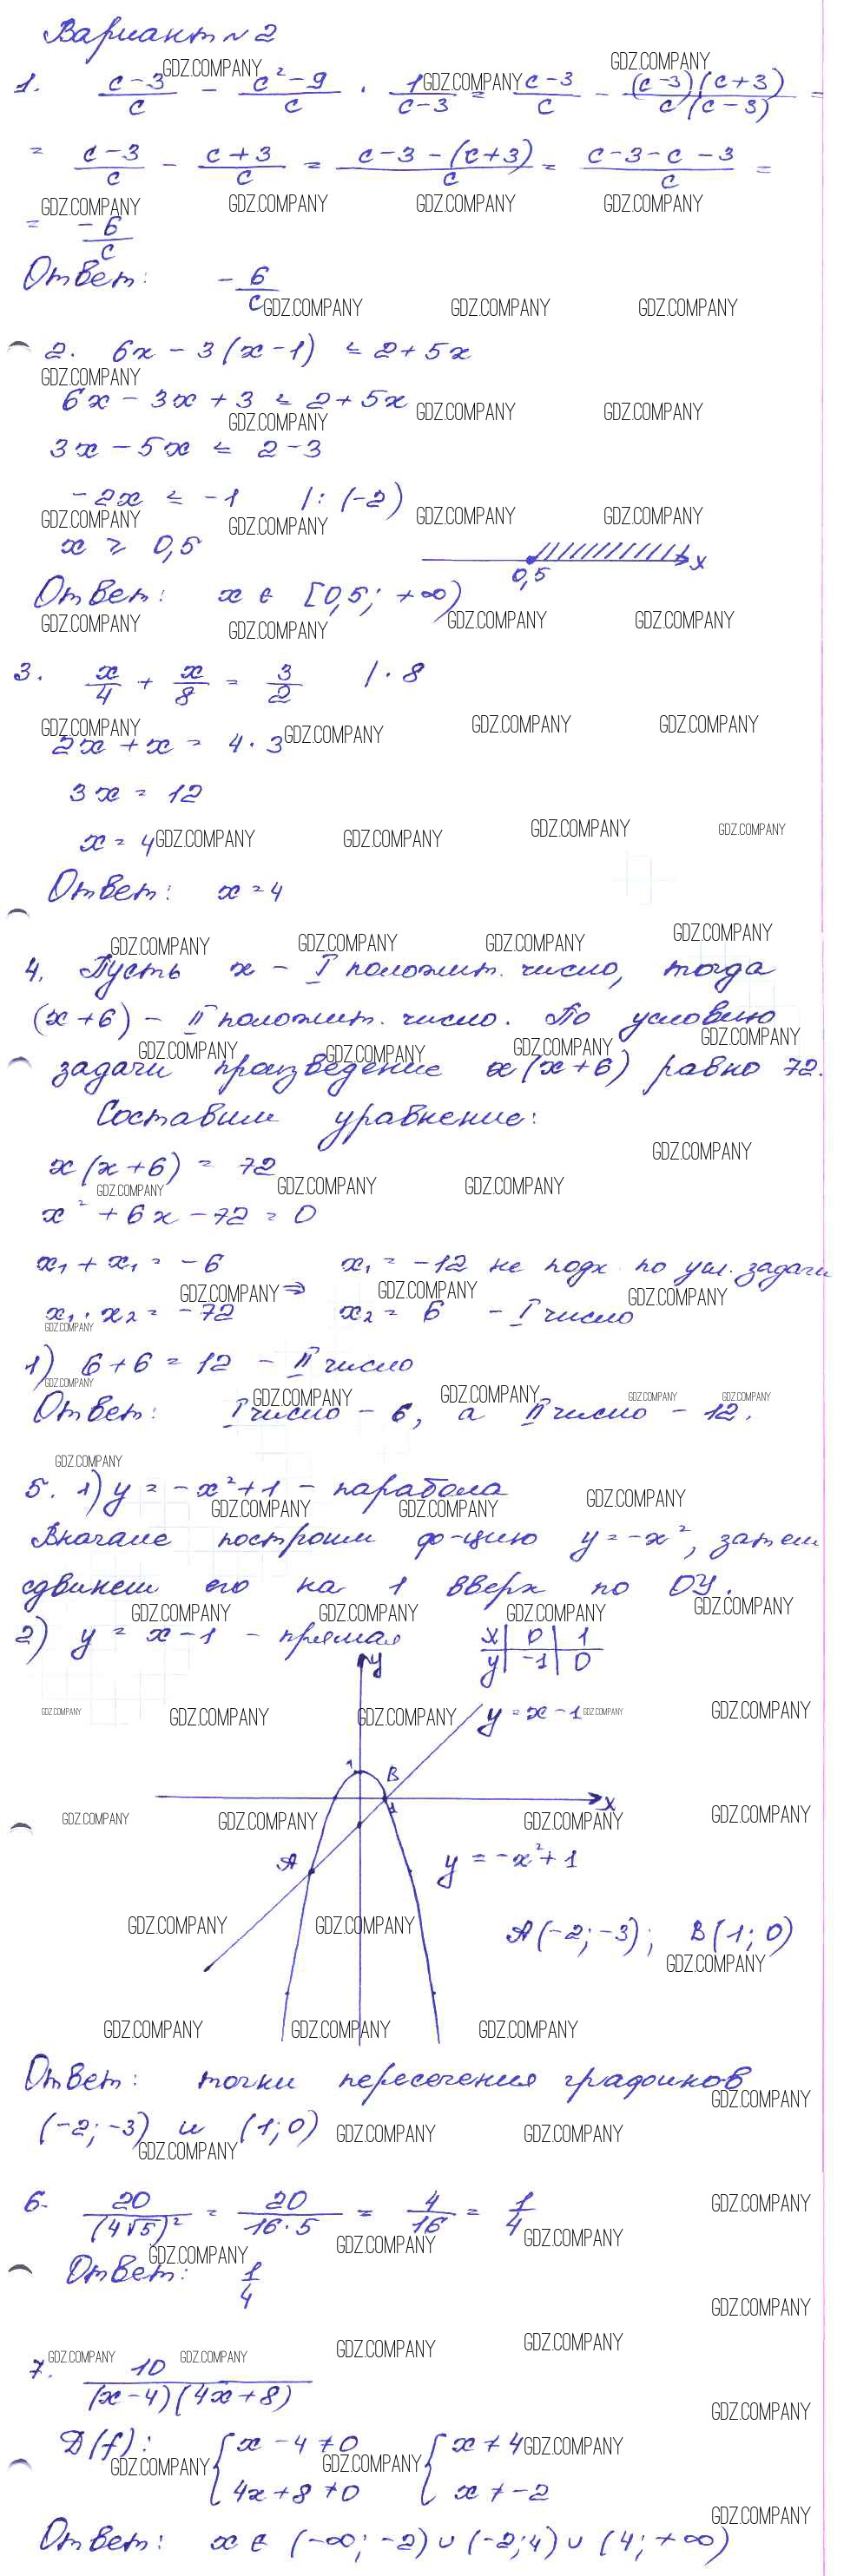 Вариант №2
1. (c-3)/c - (c²-9)/c · 1/(c-3) = (c-3)/c - ((c-3)(c+3))/(c(c-3)) =
= (c-3)/c - (c+3)/c = (c-3-(c+3))/c = (c-3-c-3)/c =
= -6/c
Ответ: -6/c
2. 6x - 3(x-1) ≤ 2+5x
6x - 3x + 3 ≤ 2+5x
3x - 5x ≤ 2-3
-2x ≤ -1 |:(-2)
x ≥ 0,5
0,5 x
Ответ: x ∈ [0,5; +∞)
3. x/4 + x/8 = 3/2 |·8
2x + x = 4·3
3x = 12
x = 4
Ответ: x = 4
4. Пусть x - I положит. число, тогда
(x+6) - II положит. число. По условию
задачи произведение x(x+6) равно 72.
Составим уравнение:
x(x+6) = 72
x² + 6x - 72 = 0
x₁ + x₁ = -6 x₁ = -12 не подх. по усл. задачи
⇒
x₁ · x₂ = -72 x₂ = 6 - I число
1) 6+6 = 12 - II число
Ответ: I число - 6, а II число - 12.
5. 1) y = -x²+1 - парабола
Вначале построим ф-цию y = -x², затем
сдвинем его на 1 вверх по OY.
2) y = x-1 - прямая
x | 0 | 1
y | -1 | 0
y
y = x-1
1
B
1
x
A
y = -x²+1
A(-2;-3); B(1;0)
Ответ: точки пересечения графиков
(-2;-3) и (1;0)
6. 20/(4√5)² = 20/(16·5) = 4/16 = 1/4
Ответ: 1/4
7. 10/((x-4)(4x+8))
D(f): { x-4≠0 { x≠4
4x+8≠0 x≠-2
Ответ: x ∈ (-∞; -2) ∪ (-2;4) ∪ (4; +∞)
GDZ.COMPANY